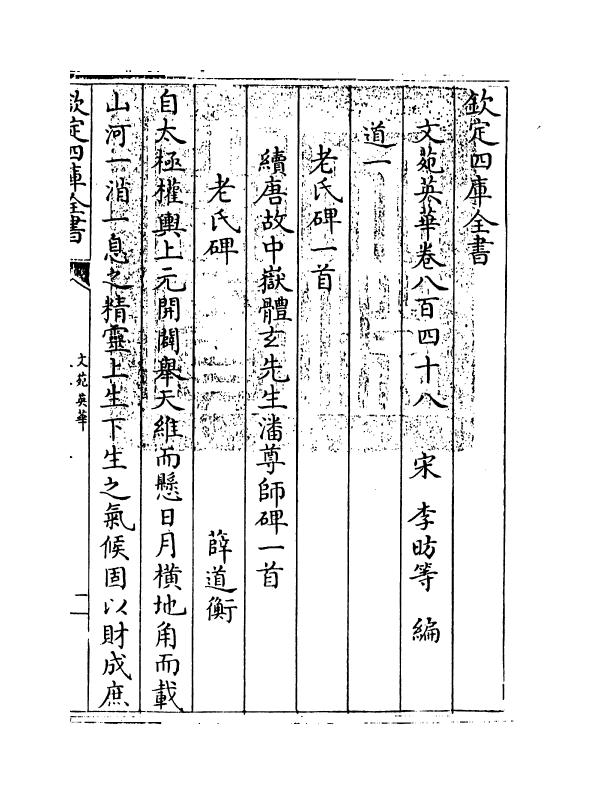 欽定四庫全書
文苑英華卷八百四十八　宋　李昉等　編
道一
老氏碑一首
續唐故中嶽體玄先生潘尊師碑一首
老氏碑　薛道衡
自太極權輿上元開闢舉天維而懸日月橫地角而載
山河一消一息之精靈上生下生之氣候固以財成庶
欽定四庫全書
文苑英華